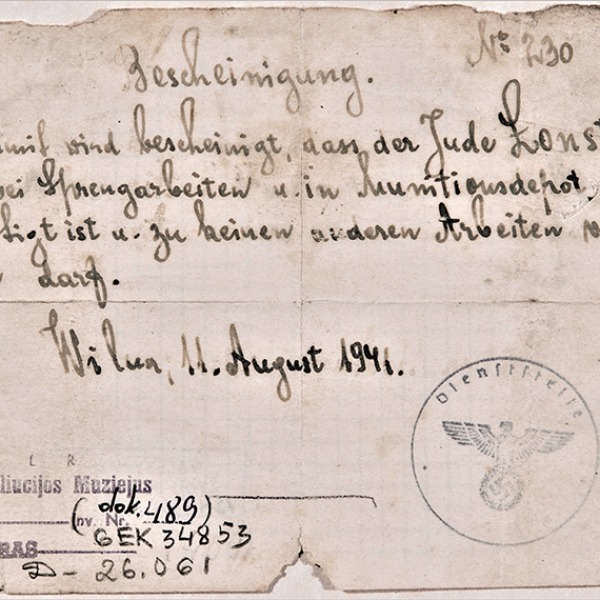 Nº 230
Bescheinigung.
mit wird bescheinigt, dass der Jude Zonst
bei Sprengarbeiten u. in Munitionsdepot
tigt ist u. zu keinen anderen Arbeiten
darf.
Wilna, 11. August 1941.
Dienststelle
L R
liucijos Muziejus
(dok. 489)
Inv. Nr.
GEK 34853
RAS
D - 26.061